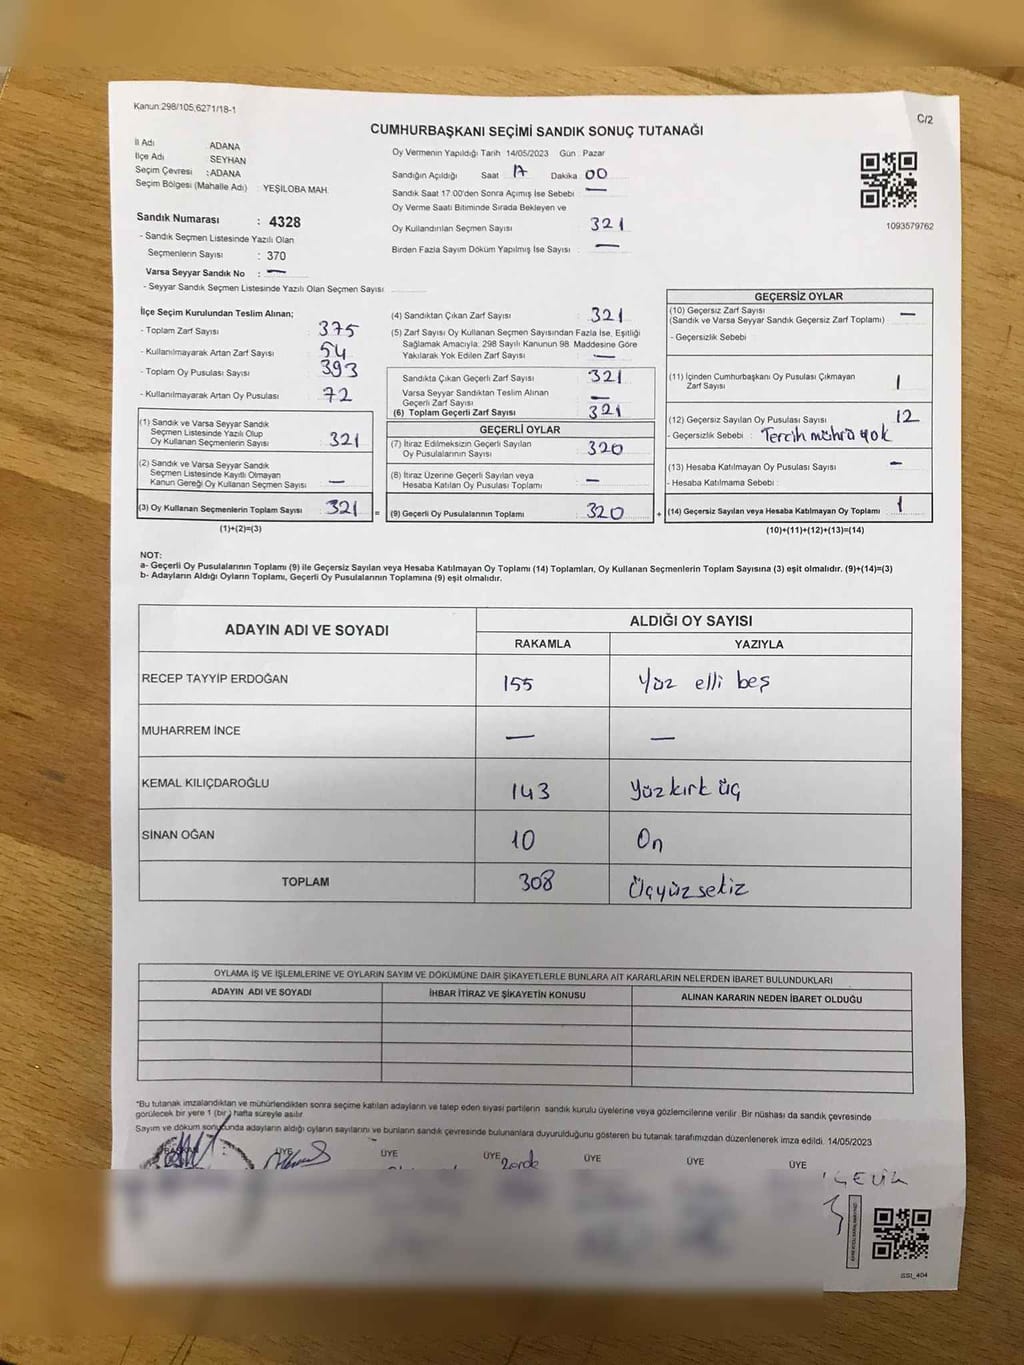 Kanun:298/105,6271/18-1
C/2
CUMHURBAŞKANI SEÇİMİ SANDIK SONUÇ TUTANAĞI
İl Adı ADANA
İlçe Adı SEYHAN
Seçim Çevresi :ADANA
Seçim Bölgesi (Mahalle Adı) : YEŞİLOBA MAH.
Sandık Numarası : 4328
- Sandık Seçmen Listesinde Yazılı Olan
Seçmenlerin Sayısı : 370
Varsa Seyyar Sandık No : —
- Seyyar Sandık Seçmen Listesinde Yazılı Olan Seçmen Sayısı
Oy Vermenin Yapıldığı Tarih 14/05/2023 Gün : Pazar
Sandığın Açıldığı Saat 17 Dakika 00
Sandık Saat 17:00'den Sonra Açımış İse Sebebi : —
Oy Verme Saati Bitiminde Sırada Bekleyen ve
Oy Kullandırılan Seçmen Sayısı 321
Birden Fazla Sayım Döküm Yapılmış İse Sayısı : —
1093579762
İlçe Seçim Kurulundan Teslim Alınan;
- Toplam Zarf Sayısı : 375
- Kullanılmayarak Artan Zarf Sayısı : 54
- Toplam Oy Pusulası Sayısı : 393
- Kullanılmayarak Artan Oy Pusulası : 72
(1) Sandık ve Varsa Seyyar Sandık
Seçmen Listesinde Yazılı Olup
Oy Kullanan Seçmenlerin Sayısı : 321
(2) Sandık ve Varsa Seyyar Sandık
Seçmen Listesinde Kayıtlı Olmayan
Kanun Gereği Oy Kullanan Seçmen Sayısı : —
(3) Oy Kullanan Seçmenlerin Toplam Sayısı : 321
(1)+(2)=(3)
(4) Sandıktan Çıkan Zarf Sayısı : 321
(5) Zarf Sayısı Oy Kullanan Seçmen Sayısından Fazla İse, Eşitliği
Sağlamak Amacıyla, 298 Sayılı Kanunun 98. Maddesine Göre
Yakılarak Yok Edilen Zarf Sayısı : —
Sandıkta Çıkan Geçerli Zarf Sayısı : 321
Varsa Seyyar Sandıktan Teslim Alınan
Geçerli Zarf Sayısı : —
(6) Toplam Geçerli Zarf Sayısı : 321
GEÇERLİ OYLAR
(7) İtiraz Edilmeksizin Geçerli Sayılan
Oy Pusulalarının Sayısı : 320
(8) İtiraz Üzerine Geçerli Sayılan veya
Hesaba Katılan Oy Pusulası Toplamı : —
= (9) Geçerli Oy Pusulalarının Toplamı : 320
GEÇERSİZ OYLAR
(10) Geçersiz Zarf Sayısı
(Sandık ve Varsa Seyyar Sandık Geçersiz Zarf Toplamı) : —
- Geçersizlik Sebebi :
(11) İçinden Cumhurbaşkanı Oy Pusulası Çıkmayan
Zarf Sayısı 1
(12) Geçersiz Sayılan Oy Pusulası Sayısı : 12
- Geçersizlik Sebebi : Tercih mührü yok
(13) Hesaba Katılmayan Oy Pusulası Sayısı : —
- Hesaba Katılmama Sebebi :
+ (14) Geçersiz Sayılan veya Hesaba Katılmayan Oy Toplamı : 1
(10)+(11)+(12)+(13)=(14)
NOT:
a- Geçerli Oy Pusulalarının Toplamı (9) ile Geçersiz Sayılan veya Hesaba Katılmayan Oy Toplamı (14) Toplamları, Oy Kullanan Seçmenlerin Toplam Sayısına (3) eşit olmalıdır. (9)+(14)=(3)
b- Adayların Aldığı Oyların Toplamı, Geçerli Oy Pusulalarının Toplamına (9) eşit olmalıdır.
ADAYIN ADI VE SOYADI ALDIĞI OY SAYISI
RAKAMLA YAZIYLA
RECEP TAYYİP ERDOĞAN 155 Yüz elli beş
MUHARREM İNCE — —
KEMAL KILIÇDAROĞLU 143 Yüz kırk üç
SİNAN OĞAN 10 On
TOPLAM 308 Üçyüz sekiz
OYLAMA İŞ VE İŞLEMLERİNE VE OYLARIN SAYIM VE DÖKÜMÜNE DAİR ŞİKAYETLERLE BUNLARA AİT KARARLARIN NELERDEN İBARET BULUNDUKLARI
ADAYIN ADI VE SOYADI İHBAR İTİRAZ VE ŞİKAYETİN KONUSU ALINAN KARARIN NEDEN İBARET OLDUĞU
*Bu tutanak imzalandıktan ve mühürlendikten sonra seçime katılan adayların ve talep eden siyasi partilerin sandık kurulu üyelerine veya gözlemcilerine verilir. Bir nüshası da sandık çevresinde
görülecek bir yere 1 (bir) hafta süreyle asılır.
Sayım ve döküm sonucunda adayların aldığı oyların sayılarını ve bunların sandık çevresinde bulunanlara duyurulduğunu gösteren bu tutanak tarafımızdan düzenlenerek imza edildi. 14/05/2023
BAŞKAN ÜYE ÜYE ÜYE ÜYE ÜYE ÜYE
SSI_404